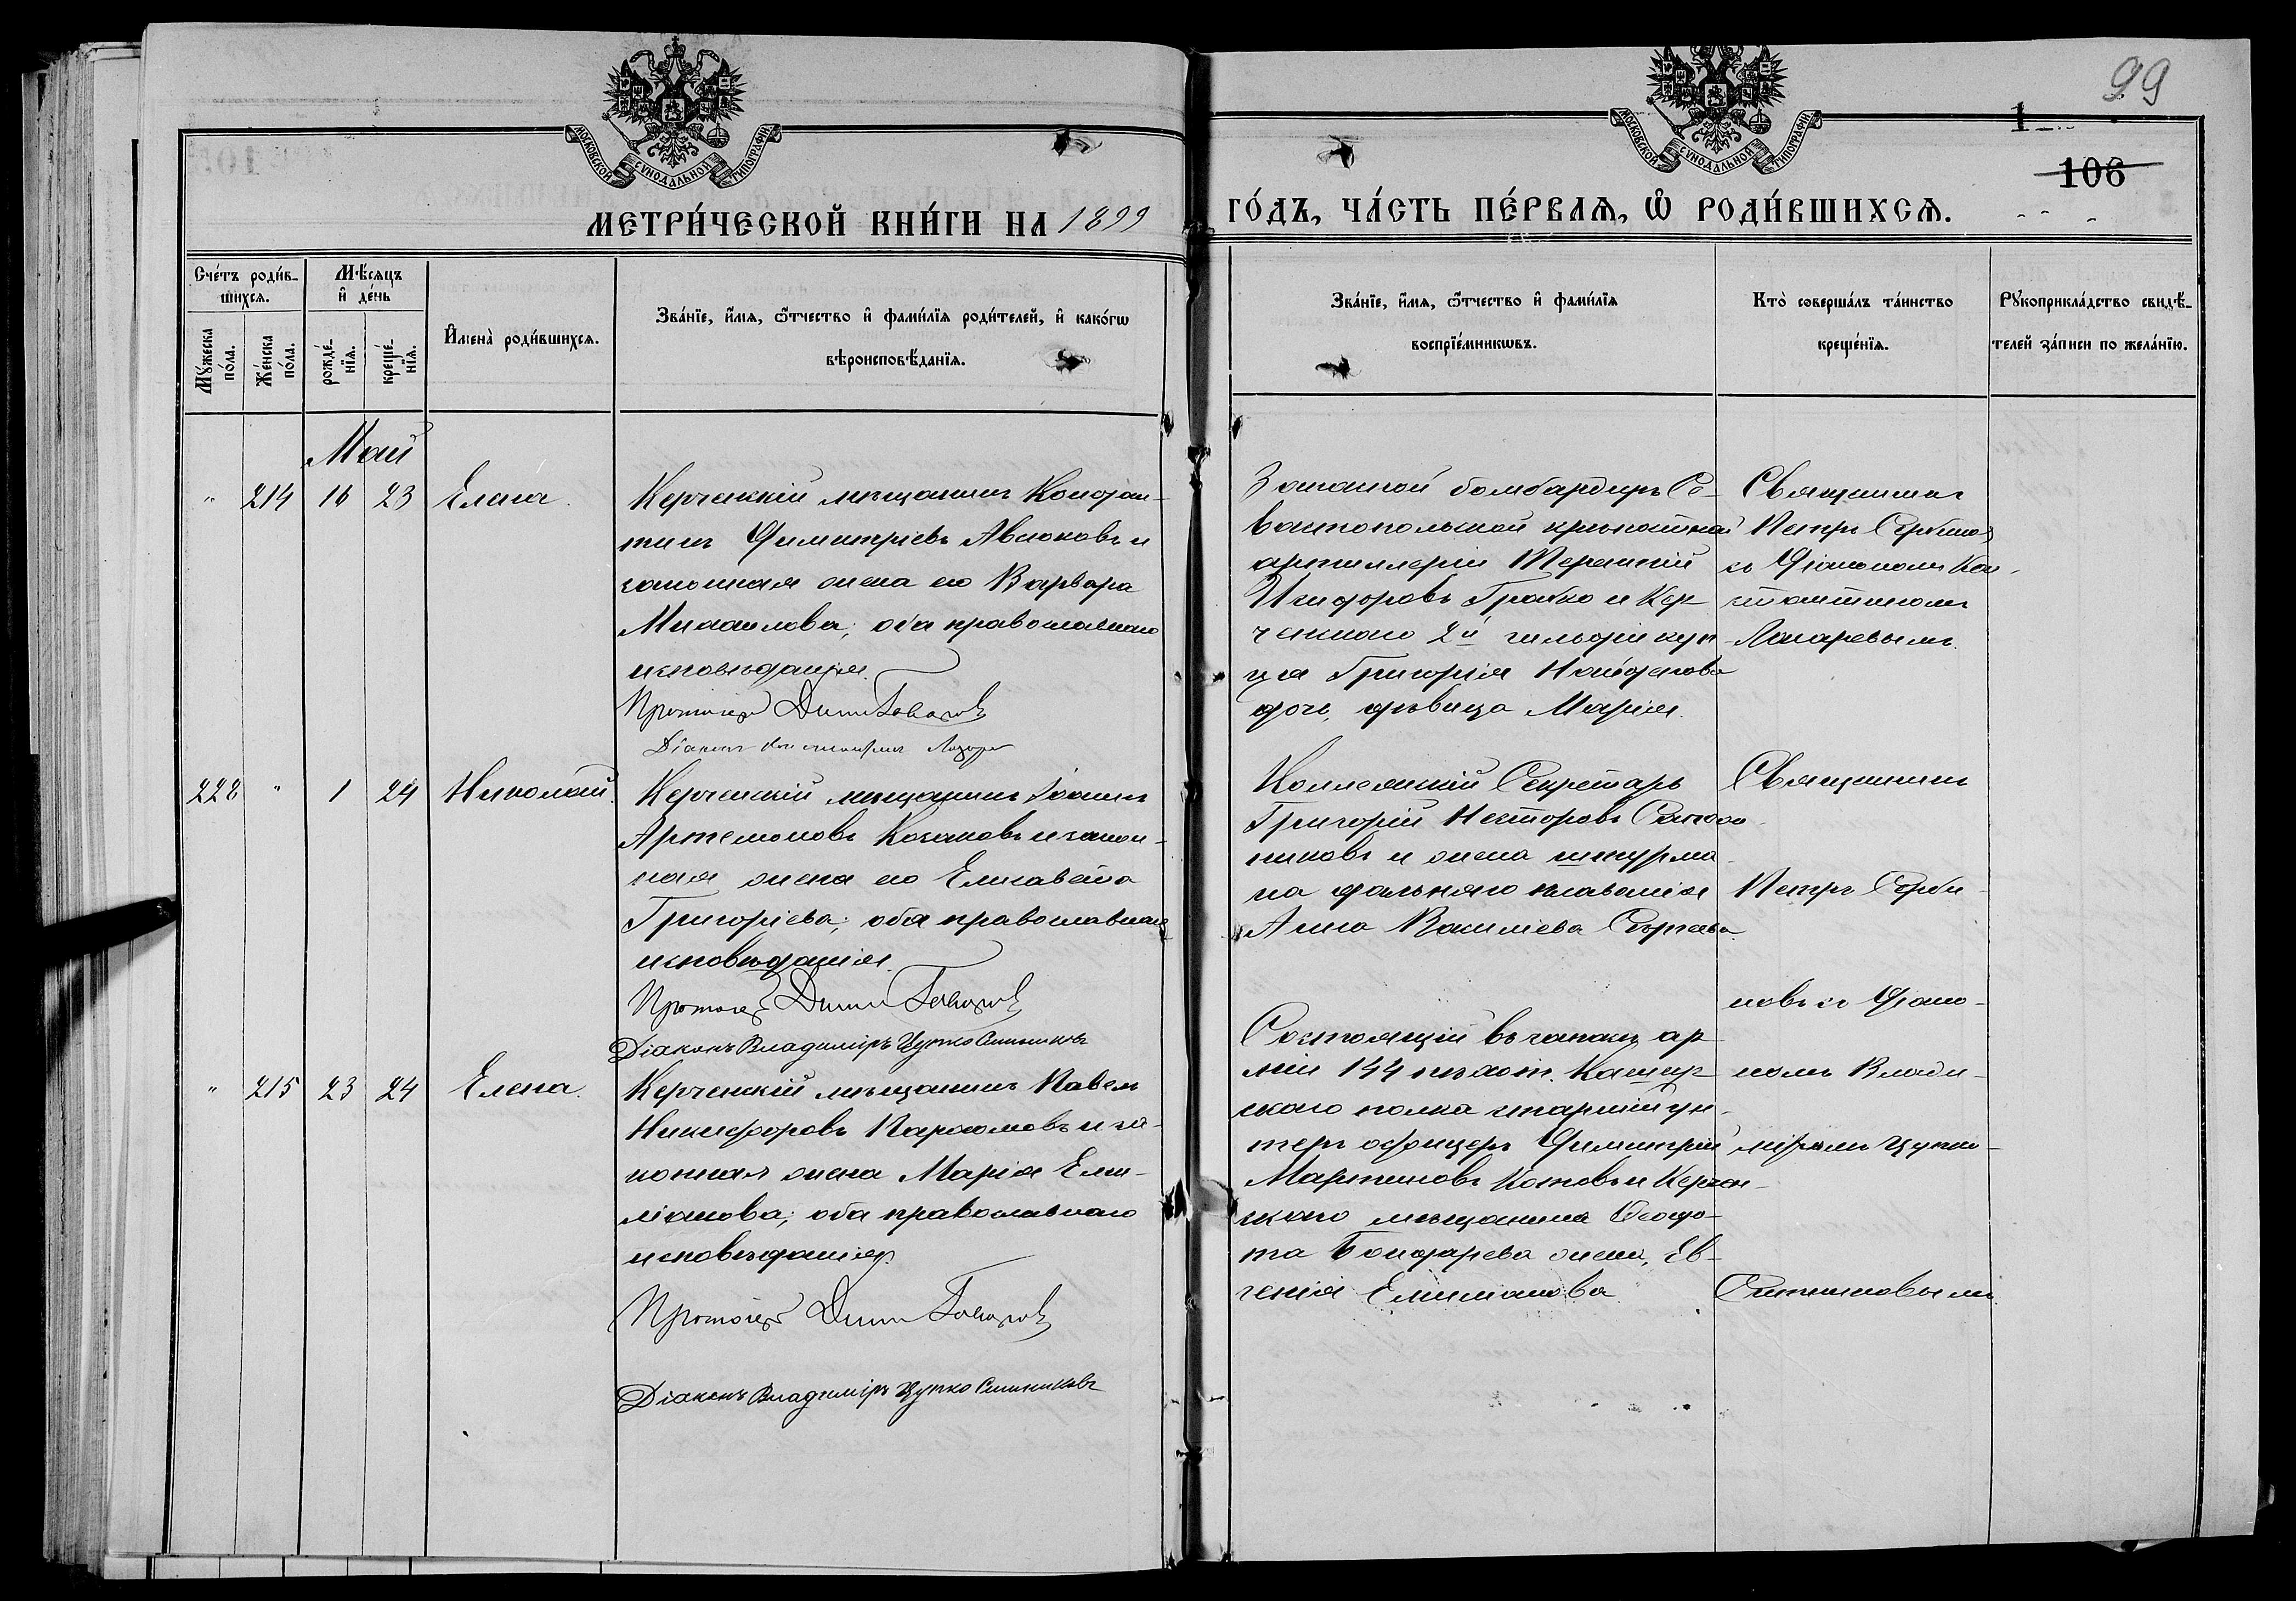 99
106
МОСКОВСКОЙ СѴНОДАЛЬНОЙ ТИПОГРАФІИ
МОСКОВСКОЙ СѴНОДАЛЬНОЙ ТИПОГРАФІИ
МЕТРИ́ЧЕСКОЙ КНИ́ГИ НА 1899
ГО́ДЪ, ЧА́СТЬ ПЕ́РВАѦ, Ѽ РОДИ́ВШИХСѦ.
Сче́тъ роди́в-
шихсѧ.
Мꙋ́жеска
по́ла.
Же́нска
по́ла.
Мѣ́сѧцъ
и҆ де́нь
рожде́-
нїѧ.
креще́-
нїѧ.
И҆мена̀ роди́вшихсѧ.
Зва́нїе, и҆́мѧ, ѻ҆́тчество и҆ фами́лїѧ роди́телей, и҆ како́гѡ
вѣроисповѣ́данїѧ.
Зва́нїе, и҆́мѧ, ѻ҆́тчество и҆ фами́лїѧ
воспрїе́мникѡвъ.
Кто̀ соверша́лъ та́инство
креще́нїѧ.
Рꙋкоприкла́дство свидѣ́-
телей за́писи по жела́нїю.
Май
" 214 16 23 Елена.
Керченскій мѣщанинъ Констан-
тинъ Димитріевъ Авсюковъ и
законная жена его Варвара
Михаилова; оба православнаго
исповѣданія.
Протоіер
Діаконъ Константинъ
Запасной бомбардиръ Се-
вастопольской крѣпостной
артиллеріи Терентій
Никифоровъ Грабко и Кер-
ченскаго 2й гильдіи куп-
ца Григорія Найденова
дочь, дѣвица Марія.
Священникъ
Петръ Сербиновъ
съ Діакономъ Кон-
стантиномъ
Лазаревымъ.
228 " 1 24 Николай.
Керченскій мѣщанинъ Іоаннъ
Артемоновъ Казаковъ и закон-
ная жена его Елисавета
Григоріева; оба православнаго
исповѣданія.
Протоіер
Діаконъ Владиміръ Цупко Ситниковъ
Коллежскій Секретарь
Григорій Несторовъ
никовъ и жена штурма-
на дальняго плаванія
Анна Василіева Сергѣева.
Священникъ
Петръ Серби-
новъ съ Діако-
номъ Влади-
міромъ Цупко-
Ситниковымъ.
" 215 23 24 Елена.
Керченскій мѣщанинъ Павелъ
Никифоровъ Пархомовъ и за-
конная жена Марія Еми-
ліанова; оба православнаго
исповѣданія.
Протоіер
Діаконъ Владиміръ Цупко Ситниковъ
Состоящій въ запасѣ ар-
міи 144 пѣхот. Кашир-
скаго полка старшій ун-
теръ офицеръ Димитрій
Мартиновъ Котовъ и Керчен-
скаго мѣщанина Ѳеодо-
та Бондарева жена, Ев-
генія Емиліанова.